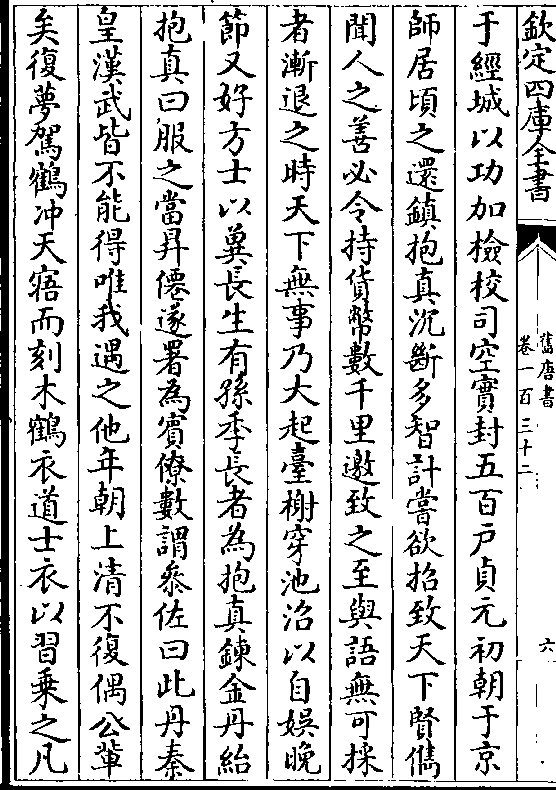 欽定四庫全書
舊唐書
卷一百三十二
六
于經城以功加檢校司空實封五百户貞元初朝于京
師居頃之還鎮抱真沉斷多智計嘗欲招致天下賢儁
聞人之善必令持貨幣數千里邀致之至與語無可採
者漸退之時天下無事乃大起臺榭穿池沼以自娛晚
節又好方士以冀長生有孫季長者為抱真鍊金丹紿
抱真曰服之當昇僊遂署為賓僚數謂叅佐曰此丹秦
皇漢武皆不能得唯我遇之他年朝上清不復偶公輩
矣復夢駕鶴冲天寤而刻木鶴衣道士衣以習乗之凡